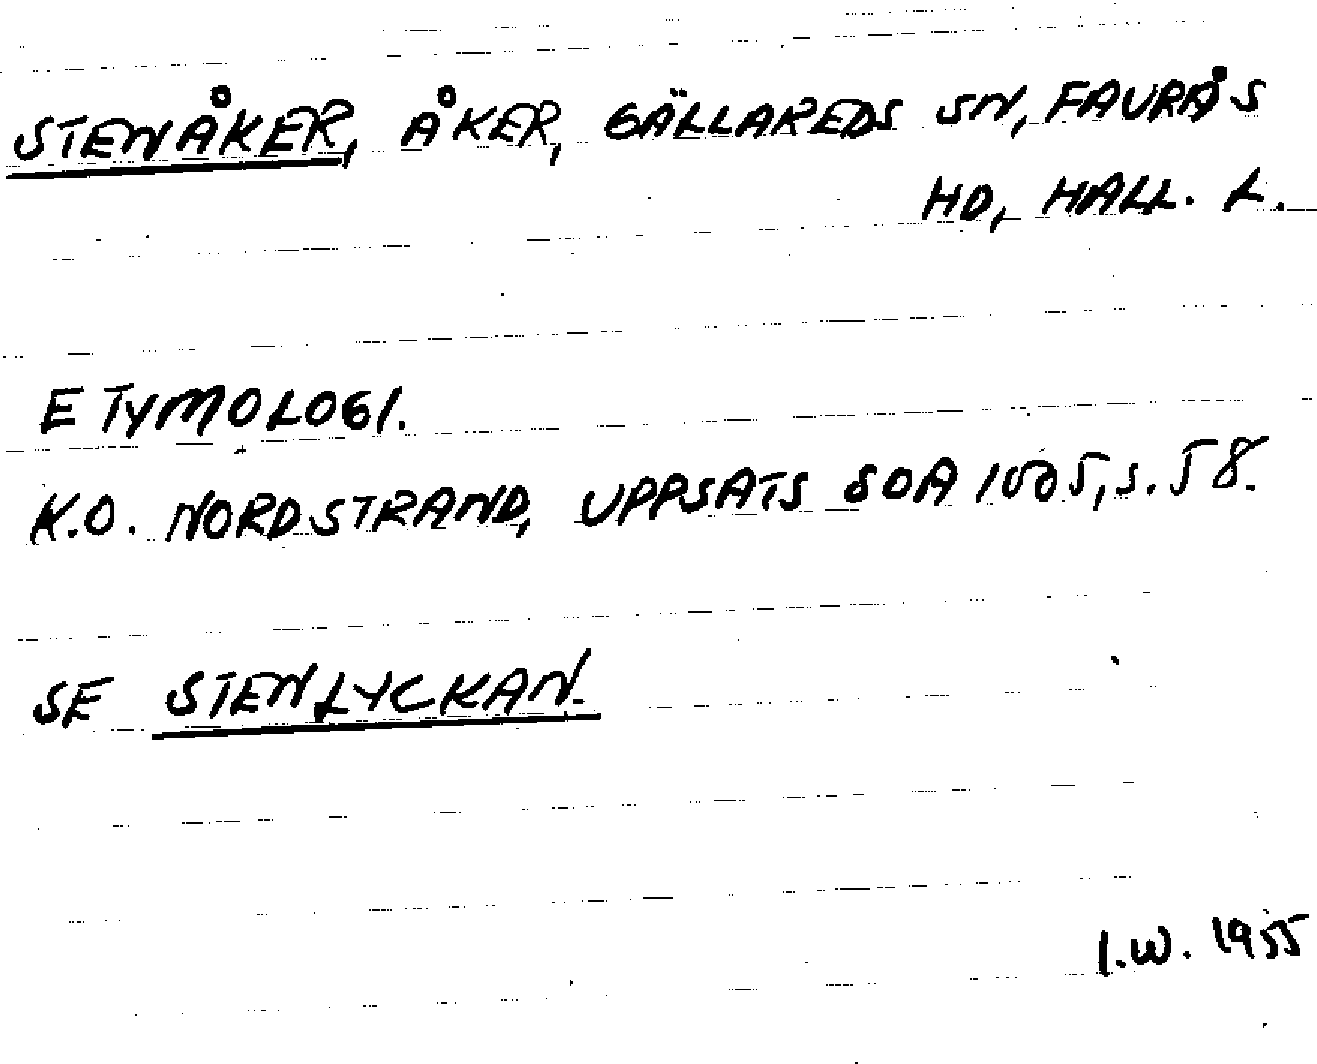 STENÅKER, ÅKER, GÄLLAREDS SN, FAURÅS
HD, HALL. L.
ETYMOLOGI.
K.O. NORDSTRAND, UPPSATS SOA 1005, S. 58.
SE STENLYCKAN.
I.W. 1955